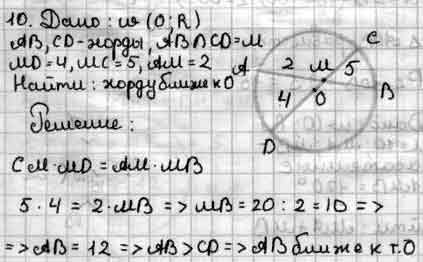 10. Дано: ω (O; R)
AB, CD - хорды, AB∩CD=M
MD=4, MC=5, AM=2
Найти: хорду ближе к O
Решение:
CM·MD=AM·MB
5·4=2·MB => MB=20:2=10 =>
=> AB=12 => AB>CD => AB ближе к т.O
C
A
2
M
5
4
O
B
D